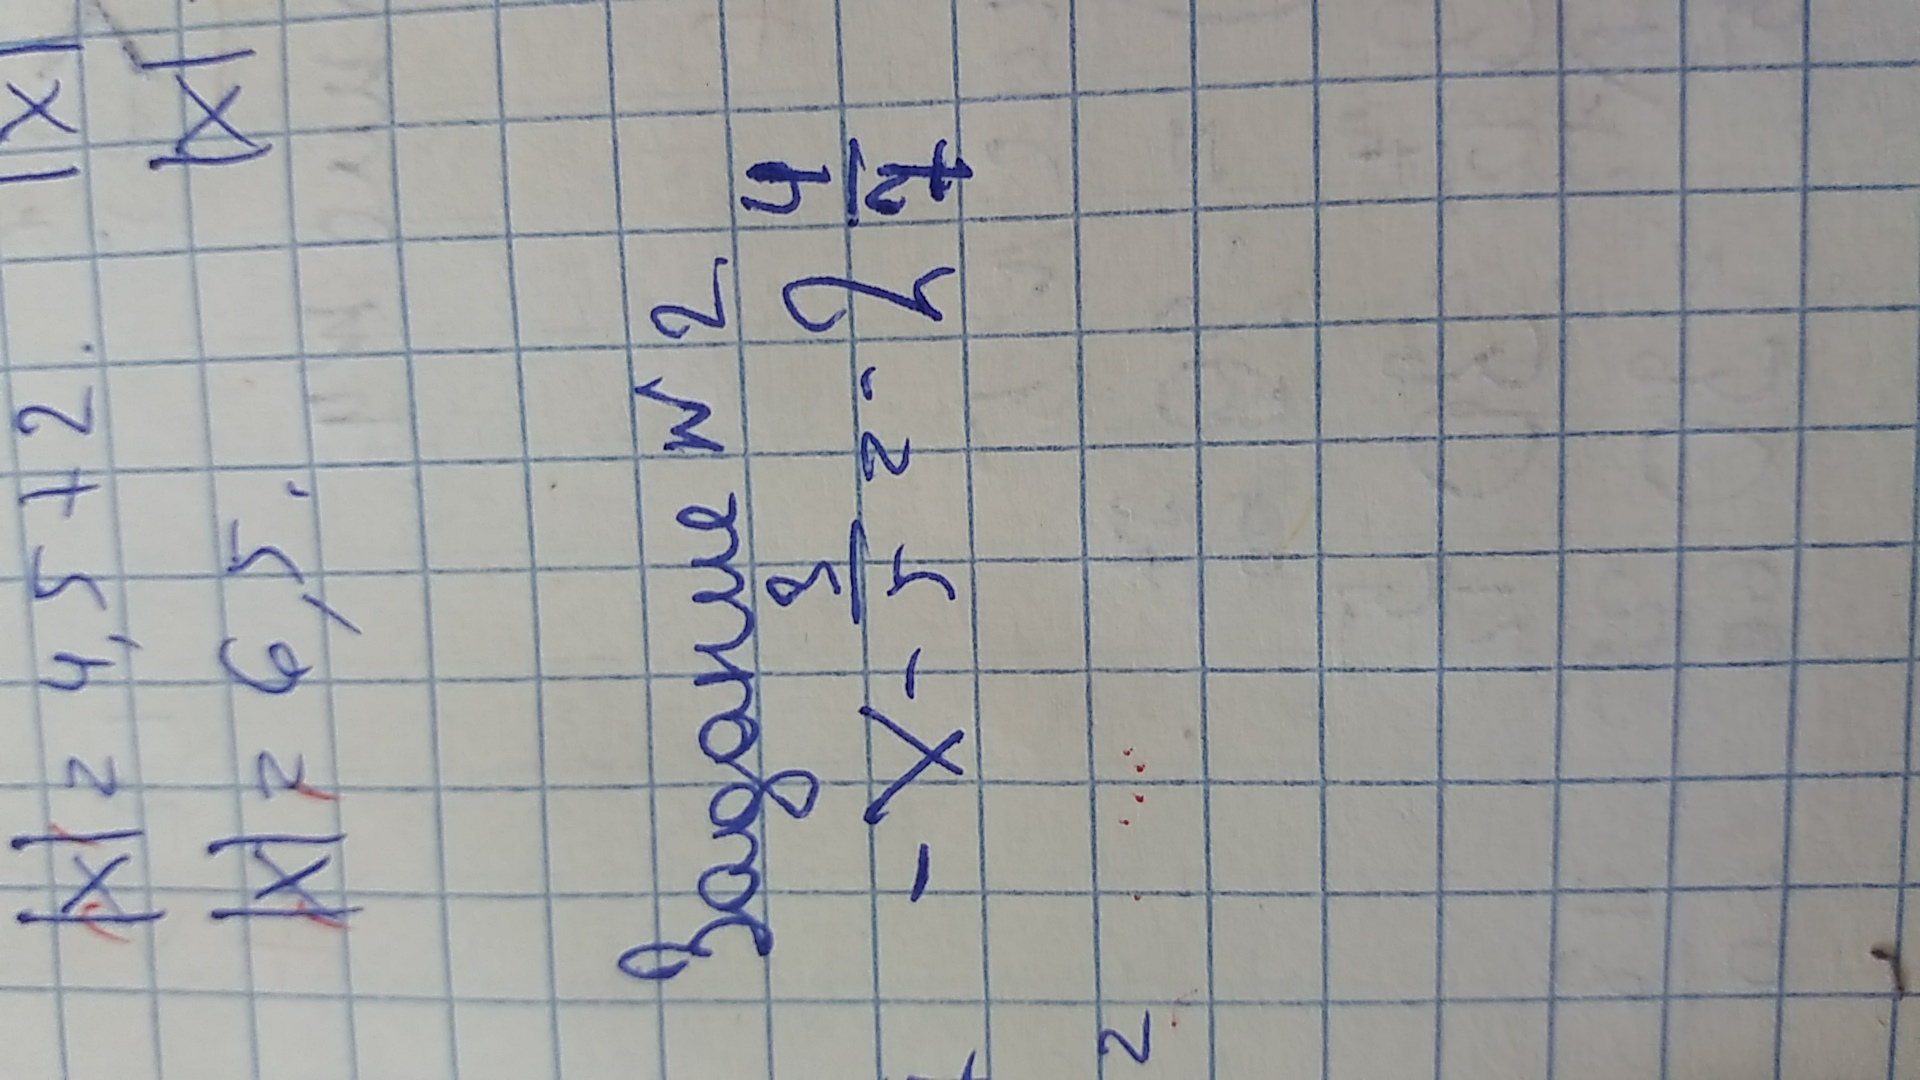 |x| = 4,5 + 2. |x|
|x| = 6,5. |x|
Задание № 2
- x - 3/5 = - 2 4/7
=